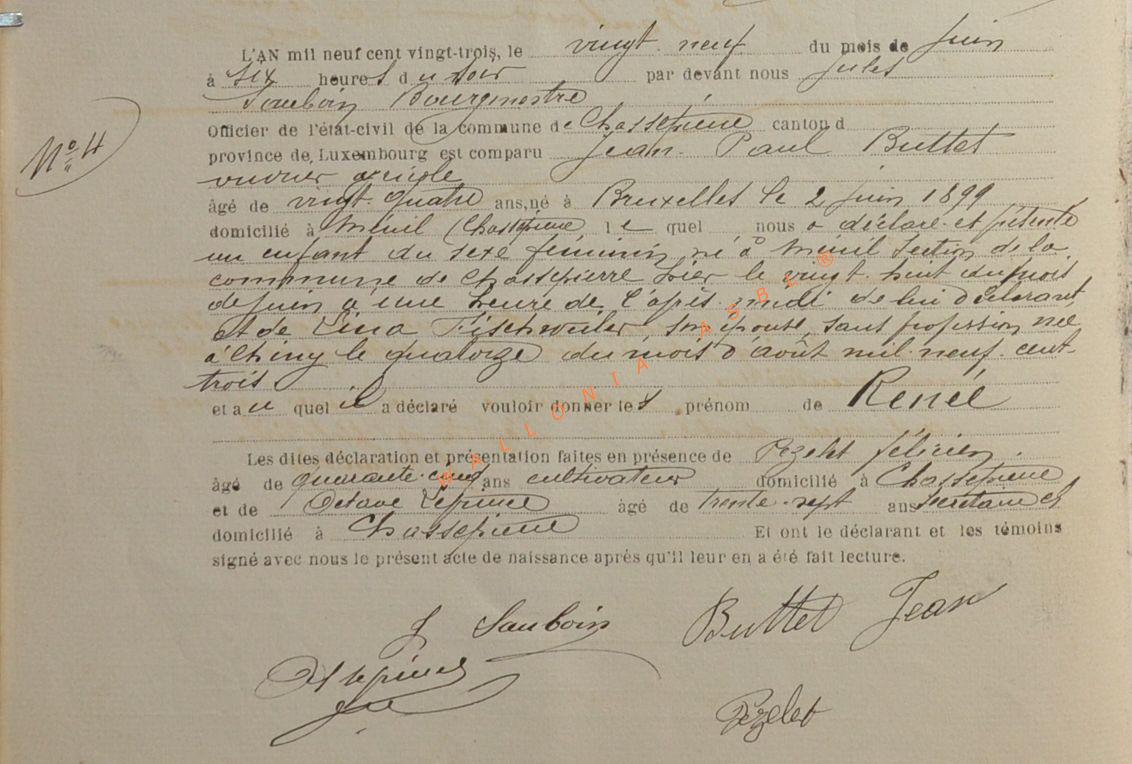 L'AN mil neuf cent vingt-trois, le vingt neuf du mois de Juin
à Six heures du soir par devant nous Jules
Sauboin Bourgmestre
Officier de l'état-civil de la commune de Chassepierre canton d
N° 4
province de Luxembourg est comparu Jean-Paul Buttet
ouvrier agricole
âgé de vingt quatre ans, né à Bruxelles le 2 Juin 1899
domicilié à Menil (Chassepierre) le quel nous a déclaré et présenté
un enfant du sexe féminin né à Menil Section de la
commune de Chassepierre hier le vingt huit du mois
de juin à une heure de l'après-midi de lui déclarant
et de Lina Fischweiler son épouse, sans profession née
à Chiny le quatorze du mois d'août mil neuf-cent-
trois
et au quel il a déclaré vouloir donner les prénom de Renée
Les dites déclaration et présentation faites en présence de Pezelet félicien
âgé de quarante-cinq ans cultivateur domicilié à Chassepierre
et de Octave Lepinne âgé de trente-sept ans secrétaire cl
domicilié à Chassepierre Et ont le déclarant et les témoins
signé avec nous le présent acte de naissance après qu'il leur en a été fait lecture.
J Sauboin Buttet Jean
Pezelet
WALLONIA ASBL ®